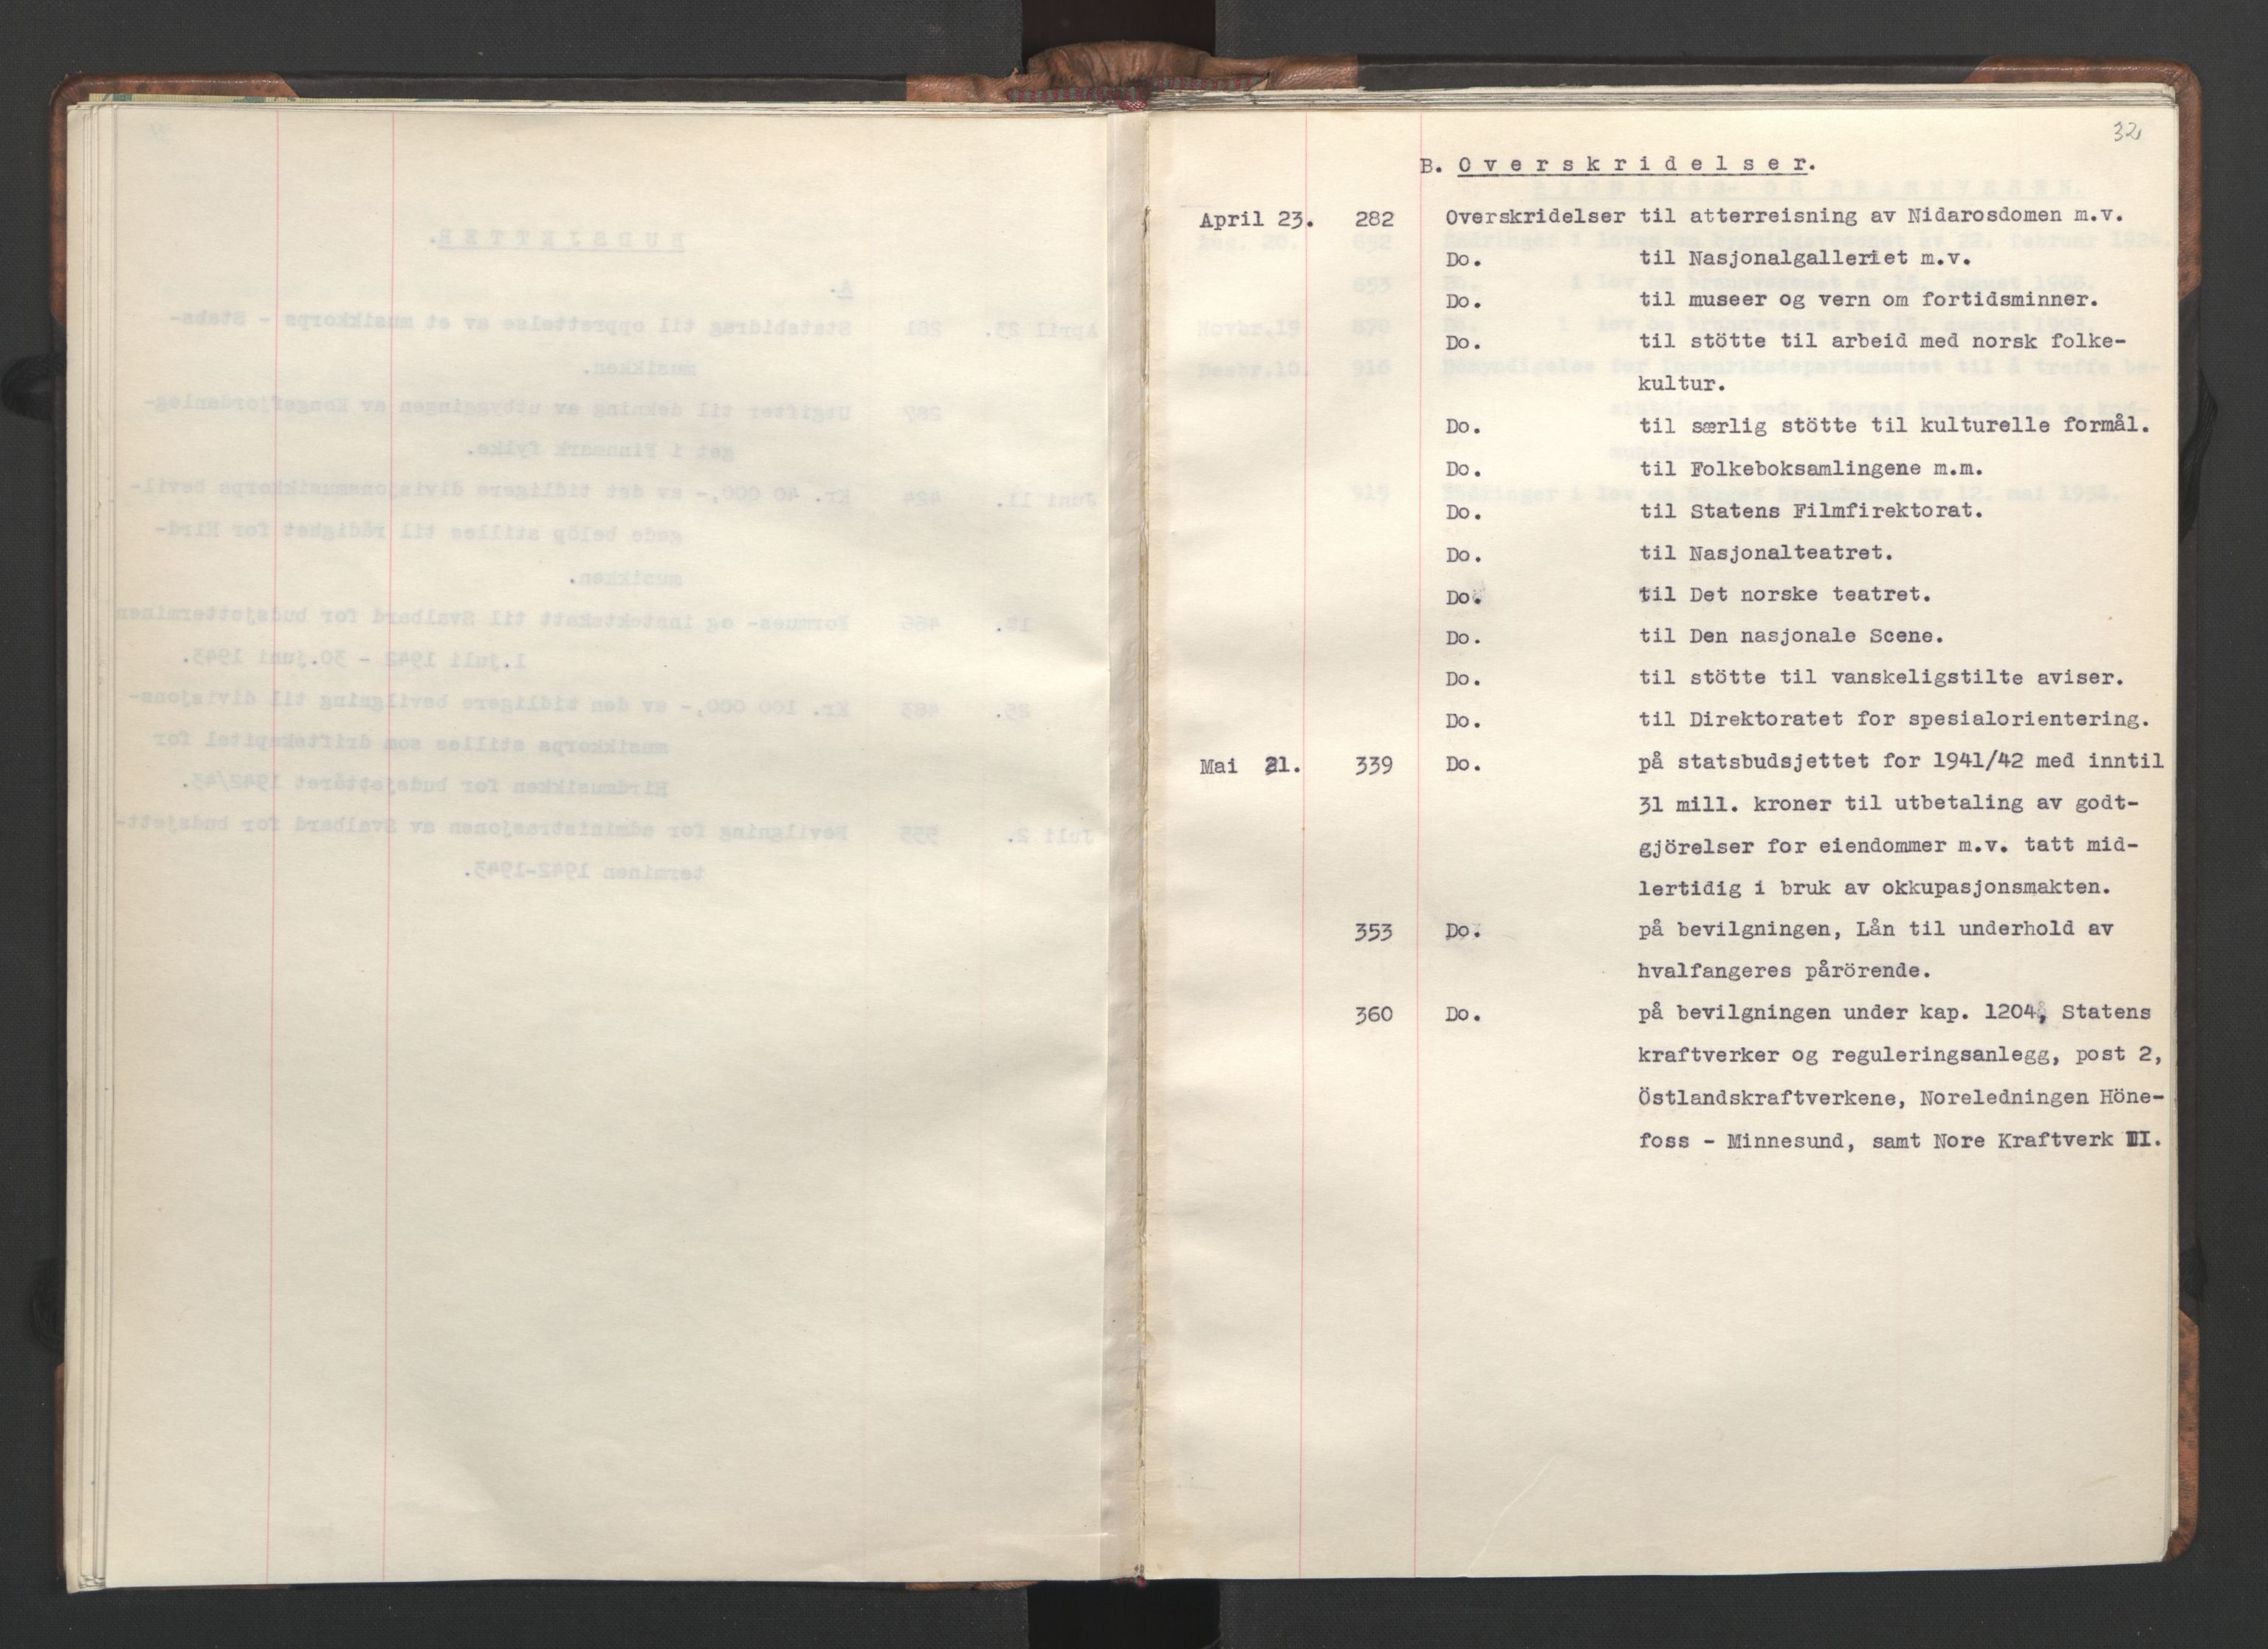 32
B. Overskridelser.
April 23. 282 Overskridelser til atterreisning av Nidarosdomen m.v.
Do. til Nasjonalgalleriet m.v.
Do. til museer og vern om fortidsminner.
Do. til stötte til arbeid med norsk folke-
kultur.
Do. til særlig stötte til kulturelle formål.
Do. til Folkeboksamlingene m.m.
Do. til Statens Filmfirektorat.
Do. til Nasjonalteatret.
Do. til Det norske teatret.
Do. til Den nasjonale Scene.
Do. til stötte til vanskeligstilte aviser.
Do. til Direktoratet for spesialorientering.
Mai 21. 339 Do. på statsbudsjettet for 1941/42 med inntil
31 mill. kroner til utbetaling av godt-
gjörelser for eiendommer m.v. tatt mid-
lertidig i bruk av okkupasjonsmakten.
353 Do. på bevilgningen, Lån til underhold av
hvalfangeres pårörende.
360 Do. på bevilgningen under kap. 1204, Statens
kraftverker og reguleringsanlegg, post 2,
Östlandskraftverkene, Noreledningen Höne-
foss - Minnesund, samt Nore Kraftverk II.